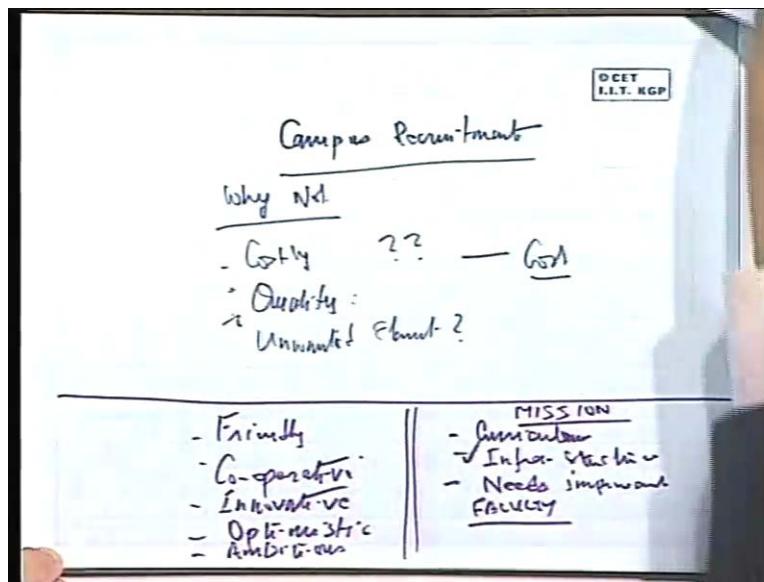 © CET
I.I.T. KGP
Campus Recruitment
Why Not
- Costly ?? — Cost
- Quality :
Unwanted ?
- Friendly
- Co-operative
- Innovative
- Optimistic
- Ambitious
MISSION
- Curriculum
- Infrastructure
- Needs
FACULTY